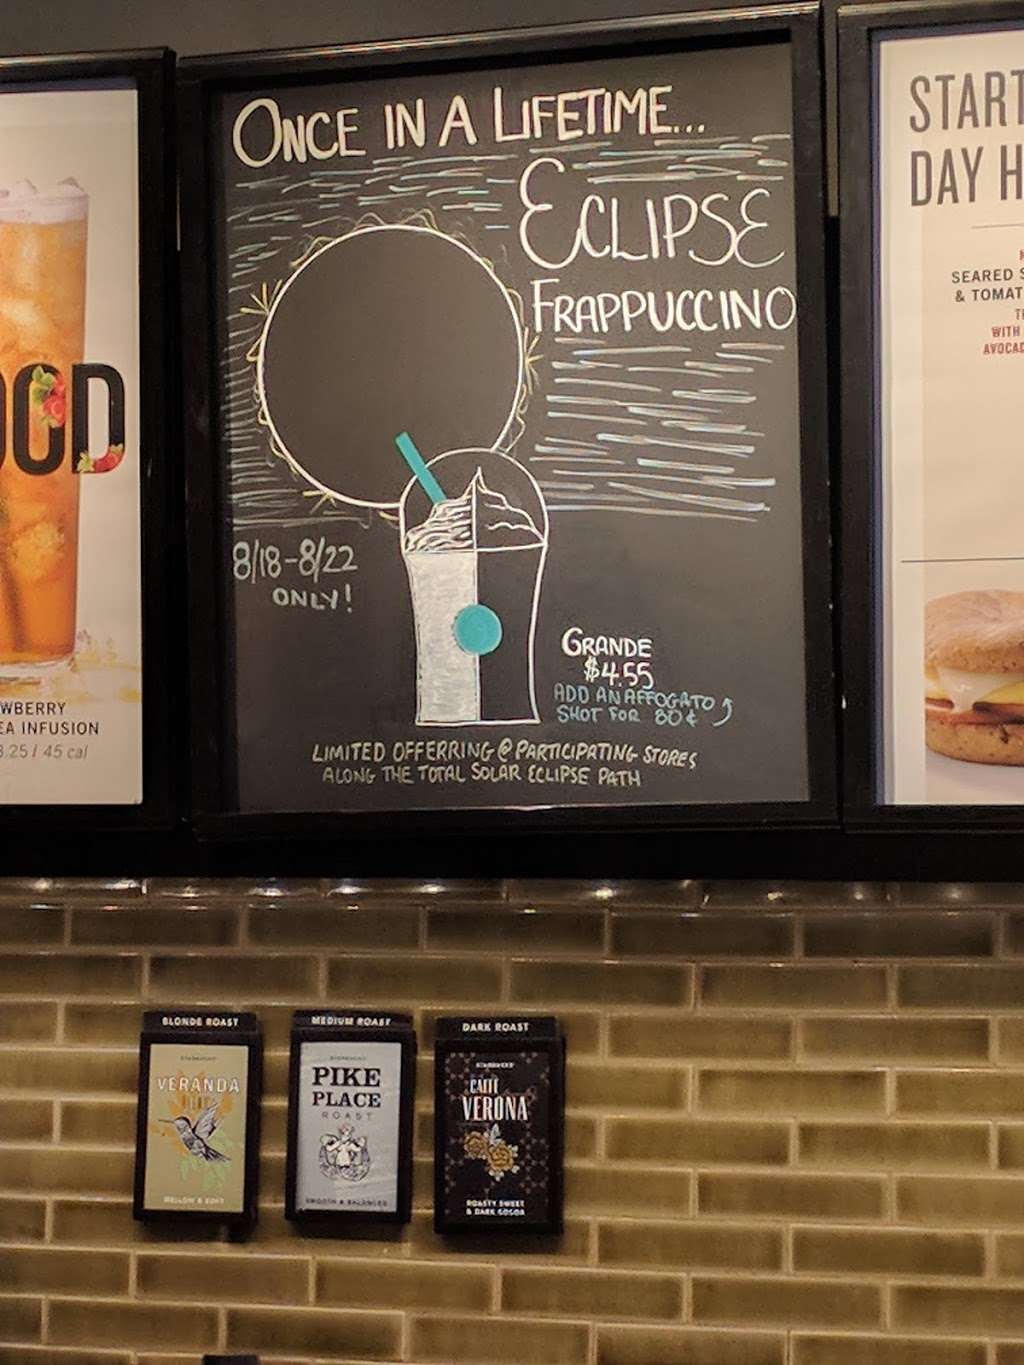 ONCE IN A LIFETIME...
ECLIPSE
FRAPPUCCINO
8/18-8/22
ONLY!
GRANDE
$4.55
ADD AN AFFOGATO
SHOT FOR 80¢
LIMITED OFFERRING @ PARTICIPATING STORES
ALONG THE TOTAL SOLAR ECLIPSE PATH
OOD
WBERRY
EA INFUSION
3.25 / 45 cal
START
DAY H
SEARED S
& TOMAT
TH
WITH
AVOCAD
BLONDE ROAST
VERANDA
MELLOW & SOFT
MEDIUM ROAST
PIKE
PLACE
ROAST
SMOOTH & BALANCED
DARK ROAST
CAFFÈ
VERONA
ROASTY SWEET
& DARK COCOA